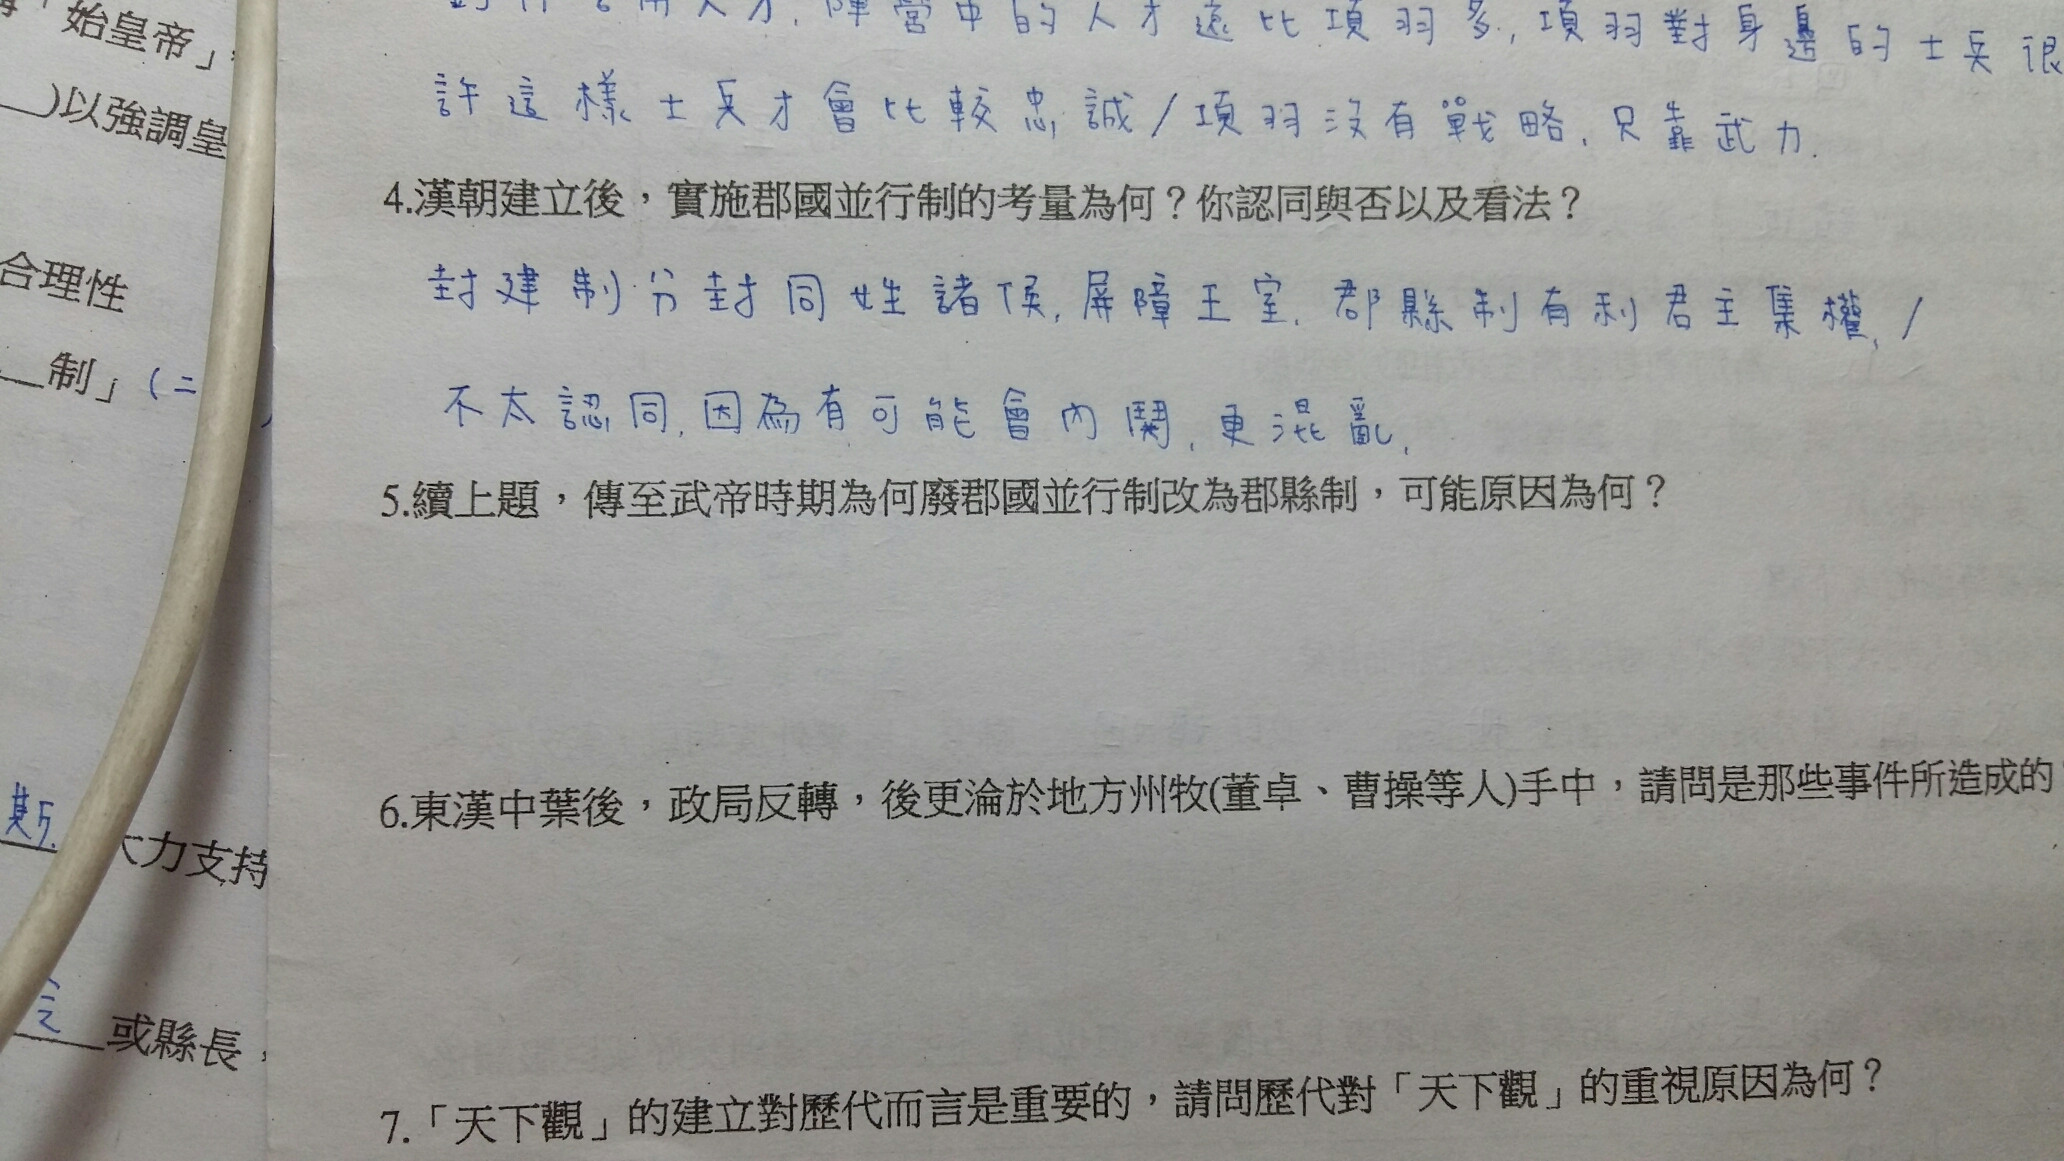 「始皇帝」
陣營中的人才遠比項羽多,項羽對身邊的士兵很
)以強調皇
許這樣士兵才會比較忠誠/項羽沒有戰略,只靠武力.
4.漢朝建立後,實施郡國並行制的考量為何?你認同與否以及看法?
合理性
封建制分封同姓諸侯,屏障王室.郡縣制有利君主集權,/
制」(二
不太認同,因為有可能會內鬨,更混亂.
5.續上題,傳至武帝時期為何廢郡國並行制改為郡縣制,可能原因為何?
6.東漢中葉後,政局反轉,後更淪於地方州牧(董卓、曹操等人)手中,請問是那些事件所造成的
斯
力支持
或縣長,
7.「天下觀」的建立對歷代而言是重要的,請問歷代對「天下觀」的重視原因為何?